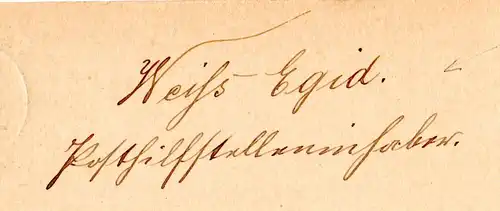 Weiß Egid.
Posthilfstelleninhaber.